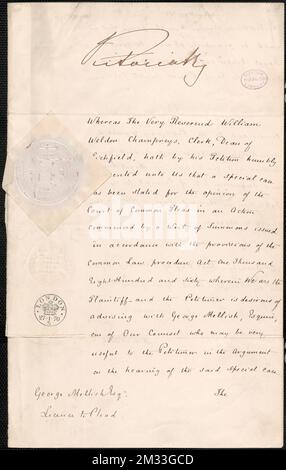 Victoria R
Whereas The Very Reverend William
Weldon Champneys, Clerk, Dean of
Lichfield, hath by his Petition humbly
represented unto Us that a special case
has been stated for the opinion of the
Court of Common Pleas in an Action
commenced by a Writ of Summons issued
in accordance with the provisions of the
Common Law procedure Act One Thousand
Eight Hundred and Sixty wherein We are the
Plaintiff and the Petitioner is desirous of
advising with George Mellish, Esquire,
one of Our Counsel who may be very
useful to the Petitioner in the Argument
on the hearing of the said Special case.
The
George Mellish Esqre.
Licence to Plead
LONDON
alamy
Image ID: 2M33GCD
www.alamy.com